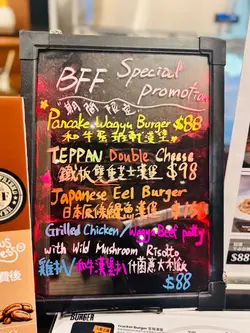 BFF Special
promotion
"期間限定"
Pancake Wagyu Burger $88
和牛班戟漢堡
TEPPAN Double Cheese
鐵板雙重芝士漢堡 $98
Japanese Eel Burger
日本
鰻魚漢堡
Grilled Chicken / Wagyu Beef patty
with Wild Mushroom Risotto
雞扒/和牛漢堡扒 什菌意大利飯
$88
BURGER